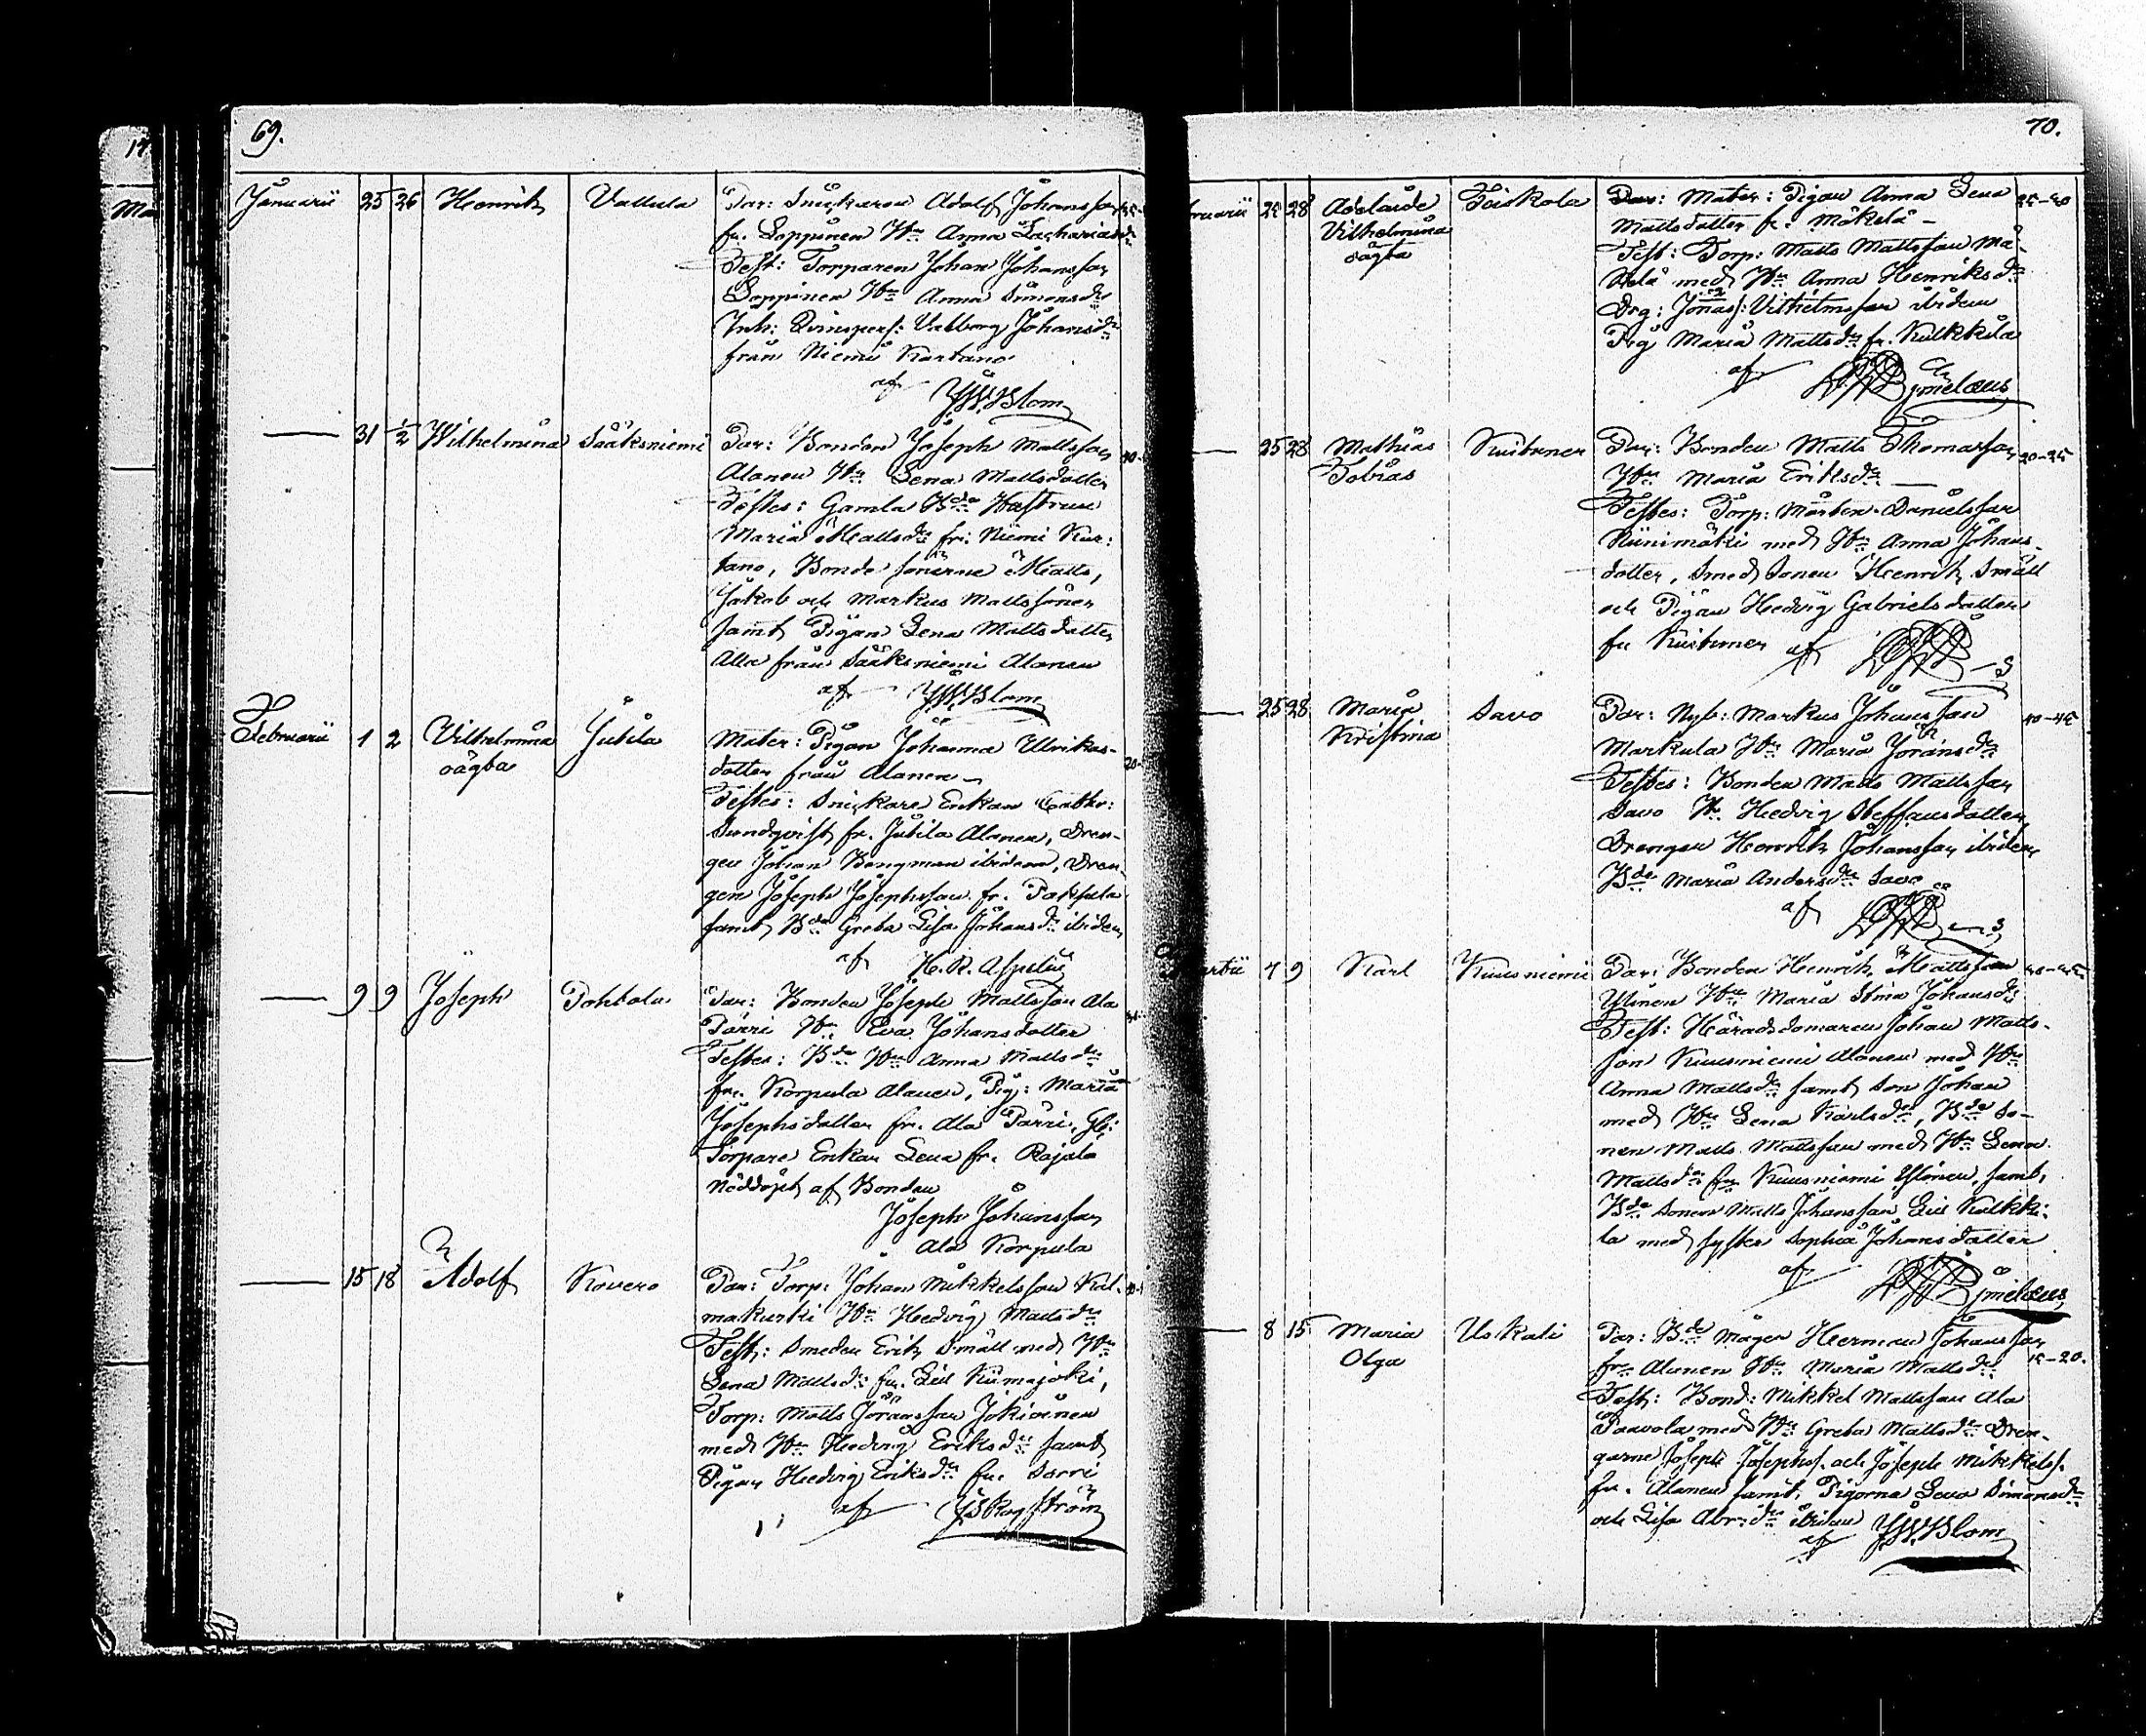 69.
Januarii 25 26 Henrik Vallula Par: Snickaren Adolf Johansson
fr. Loppinen Hu Anna Zachariædr
Test: Torparen Johan Johansson
Loppinen Hu Anna Simonsdr
Inh: Qvinspers: Valborg Johansdr
från Niemi Kartano
af JWBlom
31 1/2 Wilhelmina Sääksniemi Par: Bonden Joseph Mattsson
Alanen Hu Lena Mattsdotter
Testes: Gamla Bde Hustrun
Maria Mattsdr fr: Niemi Kar:
tano, Bonde sönerne Matts,
Jakob och Markus Mattssöner
samt Pigan Lena Mattsdotter
alla från Sääksniemi Alanen
af JWBlom
Februarii 1 2 Vilhelmina Jutila Mater: Pigan Johanna Ulrikas-
oägta dotter från Alanen
Testes: Snickare Enkan Cathr:
Sundqvist fr. Jutila Alanen, Dren-
gen Johan Bengman ibidem, Dren-
gen Joseph Josephsson fr. Pakkula
samt Bda Greta Lisa Johansdr ibidem
af H. R. Aspelin
9 9 Joseph Pohtola Par: Bonden Joseph Mattsson Ala
Pärri Hu Eva Johansdotter
Testes: Bde Hu Anna Mattsdr
fr. Korpula Alanen, Pig: Maria
Josephsdotter fr. Ala Pärri, Gl:
Torpare Enkan Lena fr. Rajala
Nöddöpt af Bonden
Joseph Johansson
Ala Korpula
15 18 Adolf Kovero Par: Torp: Johan Mikkelsson Kal-
makurki Hu Hedvig Mattsdr
Test: Smeden Erik Småll med Hu
Lena Mattsdr fr. Lill Kiimajoki,
Torp: Matts Göransson Jokioinen
med Hu Hedvig Eriksdr samt
Pigan Hedvig Eriksdr fr. Sorri
af JSRogström
70.
Februarii 24 28 Adelaide Teiskola Par: Mater: Pigan Anna Lena 25-30
Vilhelmina Mattsdotter fr. Mäkelä -
oägta Test: Torp: Matts Mattsson Mä-
kelä med Hu Anna Henriksdr
Drg: Jonas Vilhelmsson ibidem
Pig Maria Mattsdr fr. Kulkkila
af
25 28 Mathias Kuitunen Par: Bonden Matts Thomasson 20-25
Tobias Hu Maria Eriksdr
Testes: Torp: Mårten Danielsson
Niinimäki med Hu Anna Johans-
dotter, Smed Sonen Henrik Småll
och Pigan Hedvig Gabrielsdotter
fr Kuitunen af
25 28 Maria Savo Par: Nyb: Markus Johansson 40-45
Kristina Markula Hu Maria Göransdr
Testes: Bonden Matts Mattsson
Savo Hu Hedvig Steffansdotter,
Drengen Henrik Johansson ibidem
Bde Maria Andersdr Savo
af
Martii 7 9 Karl Kuusniemi Par: Bonden Henrik Mattsson 40-45
Ylinen Hu Maria Stina Johansdr
Test: Häradsdomaren Johan Matts-
son Kuusniemi Alanen med Hu
Anna Mattsdr samt son Johan
med Hu Lena Karlsdr, Bde So-
nen Matts Mattsson med Hu Lena
Mattsdr fr Kuusniemi Ylinen, samt
Bde Sonen Matts Johansson Lill Kulkki-
la med syster Sophia Johansdotter
af
8 15 Maria Uskali Par: Bde Mågen Herman Johansson
Olga fr. Alanen Hu Maria Mattsdr 15-20.
Test: Bond: Mikkel Mattsson Ala
Paavola med Hu Greta Mattsdr Dren-
garne Joseph Josephss. och Joseph Mikkelss.
fr. Alanen samt Pigorna Lena Simonsdr
och Lisa Abr:dr ibidem af JWBlom